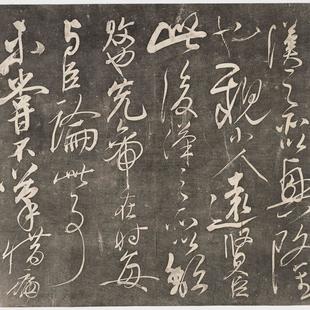 漢之所以興隆
也親小人遠賢臣
此後漢之所以傾
頹也先帝在時每
與臣論此事
未嘗不歎惜痛